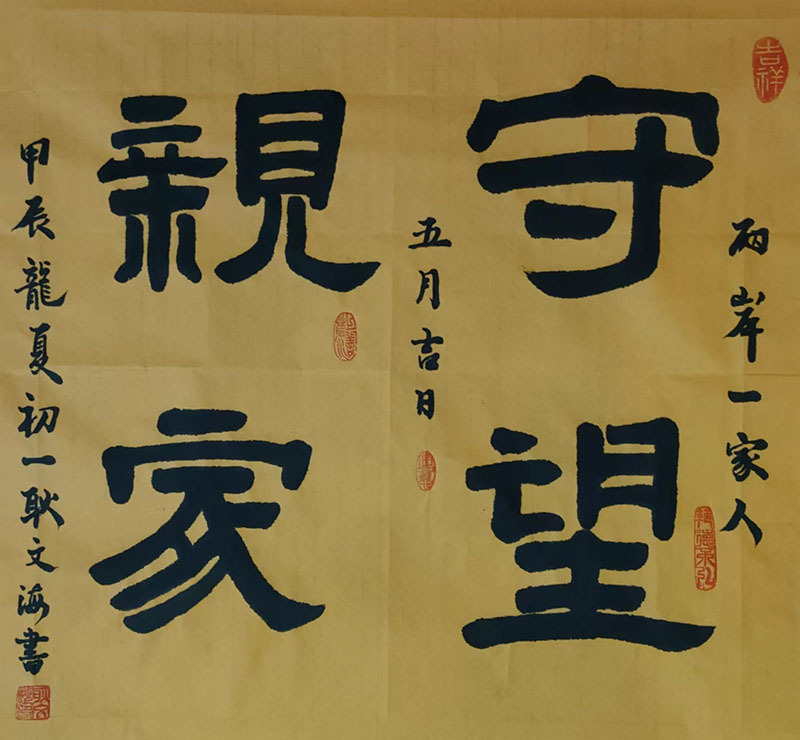 吉祥
兩岸一家人
守望
五月吉日
親家
甲辰龍夏初一耿文海書